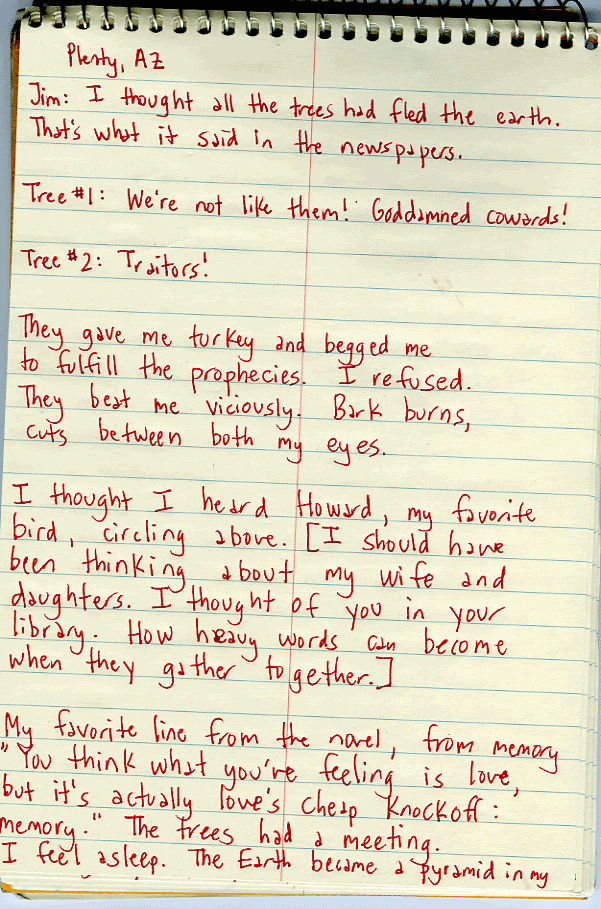 Plenty, AZ
Jim: I thought all the trees had fled the earth.
That's what it said in the newspapers.
Tree #1: We're not like them! Goddamned cowards!
Tree #2: Traitors!
They gave me turkey and begged me
to fulfill the prophecies. I refused.
They beat me viciously. Bark burns,
cuts between both my eyes.
I thought I heard Howard, my favorite
bird, circling above. [I should have
been thinking about my wife and
daughters. I thought of you in your
library. How heavy words can become
when they gather together.]
My favorite line from the novel, from memory
"You think what you're feeling is love,
but it's actually love's cheap knockoff:
memory." The trees had a meeting.
I feel asleep. The Earth became a pyramid in my